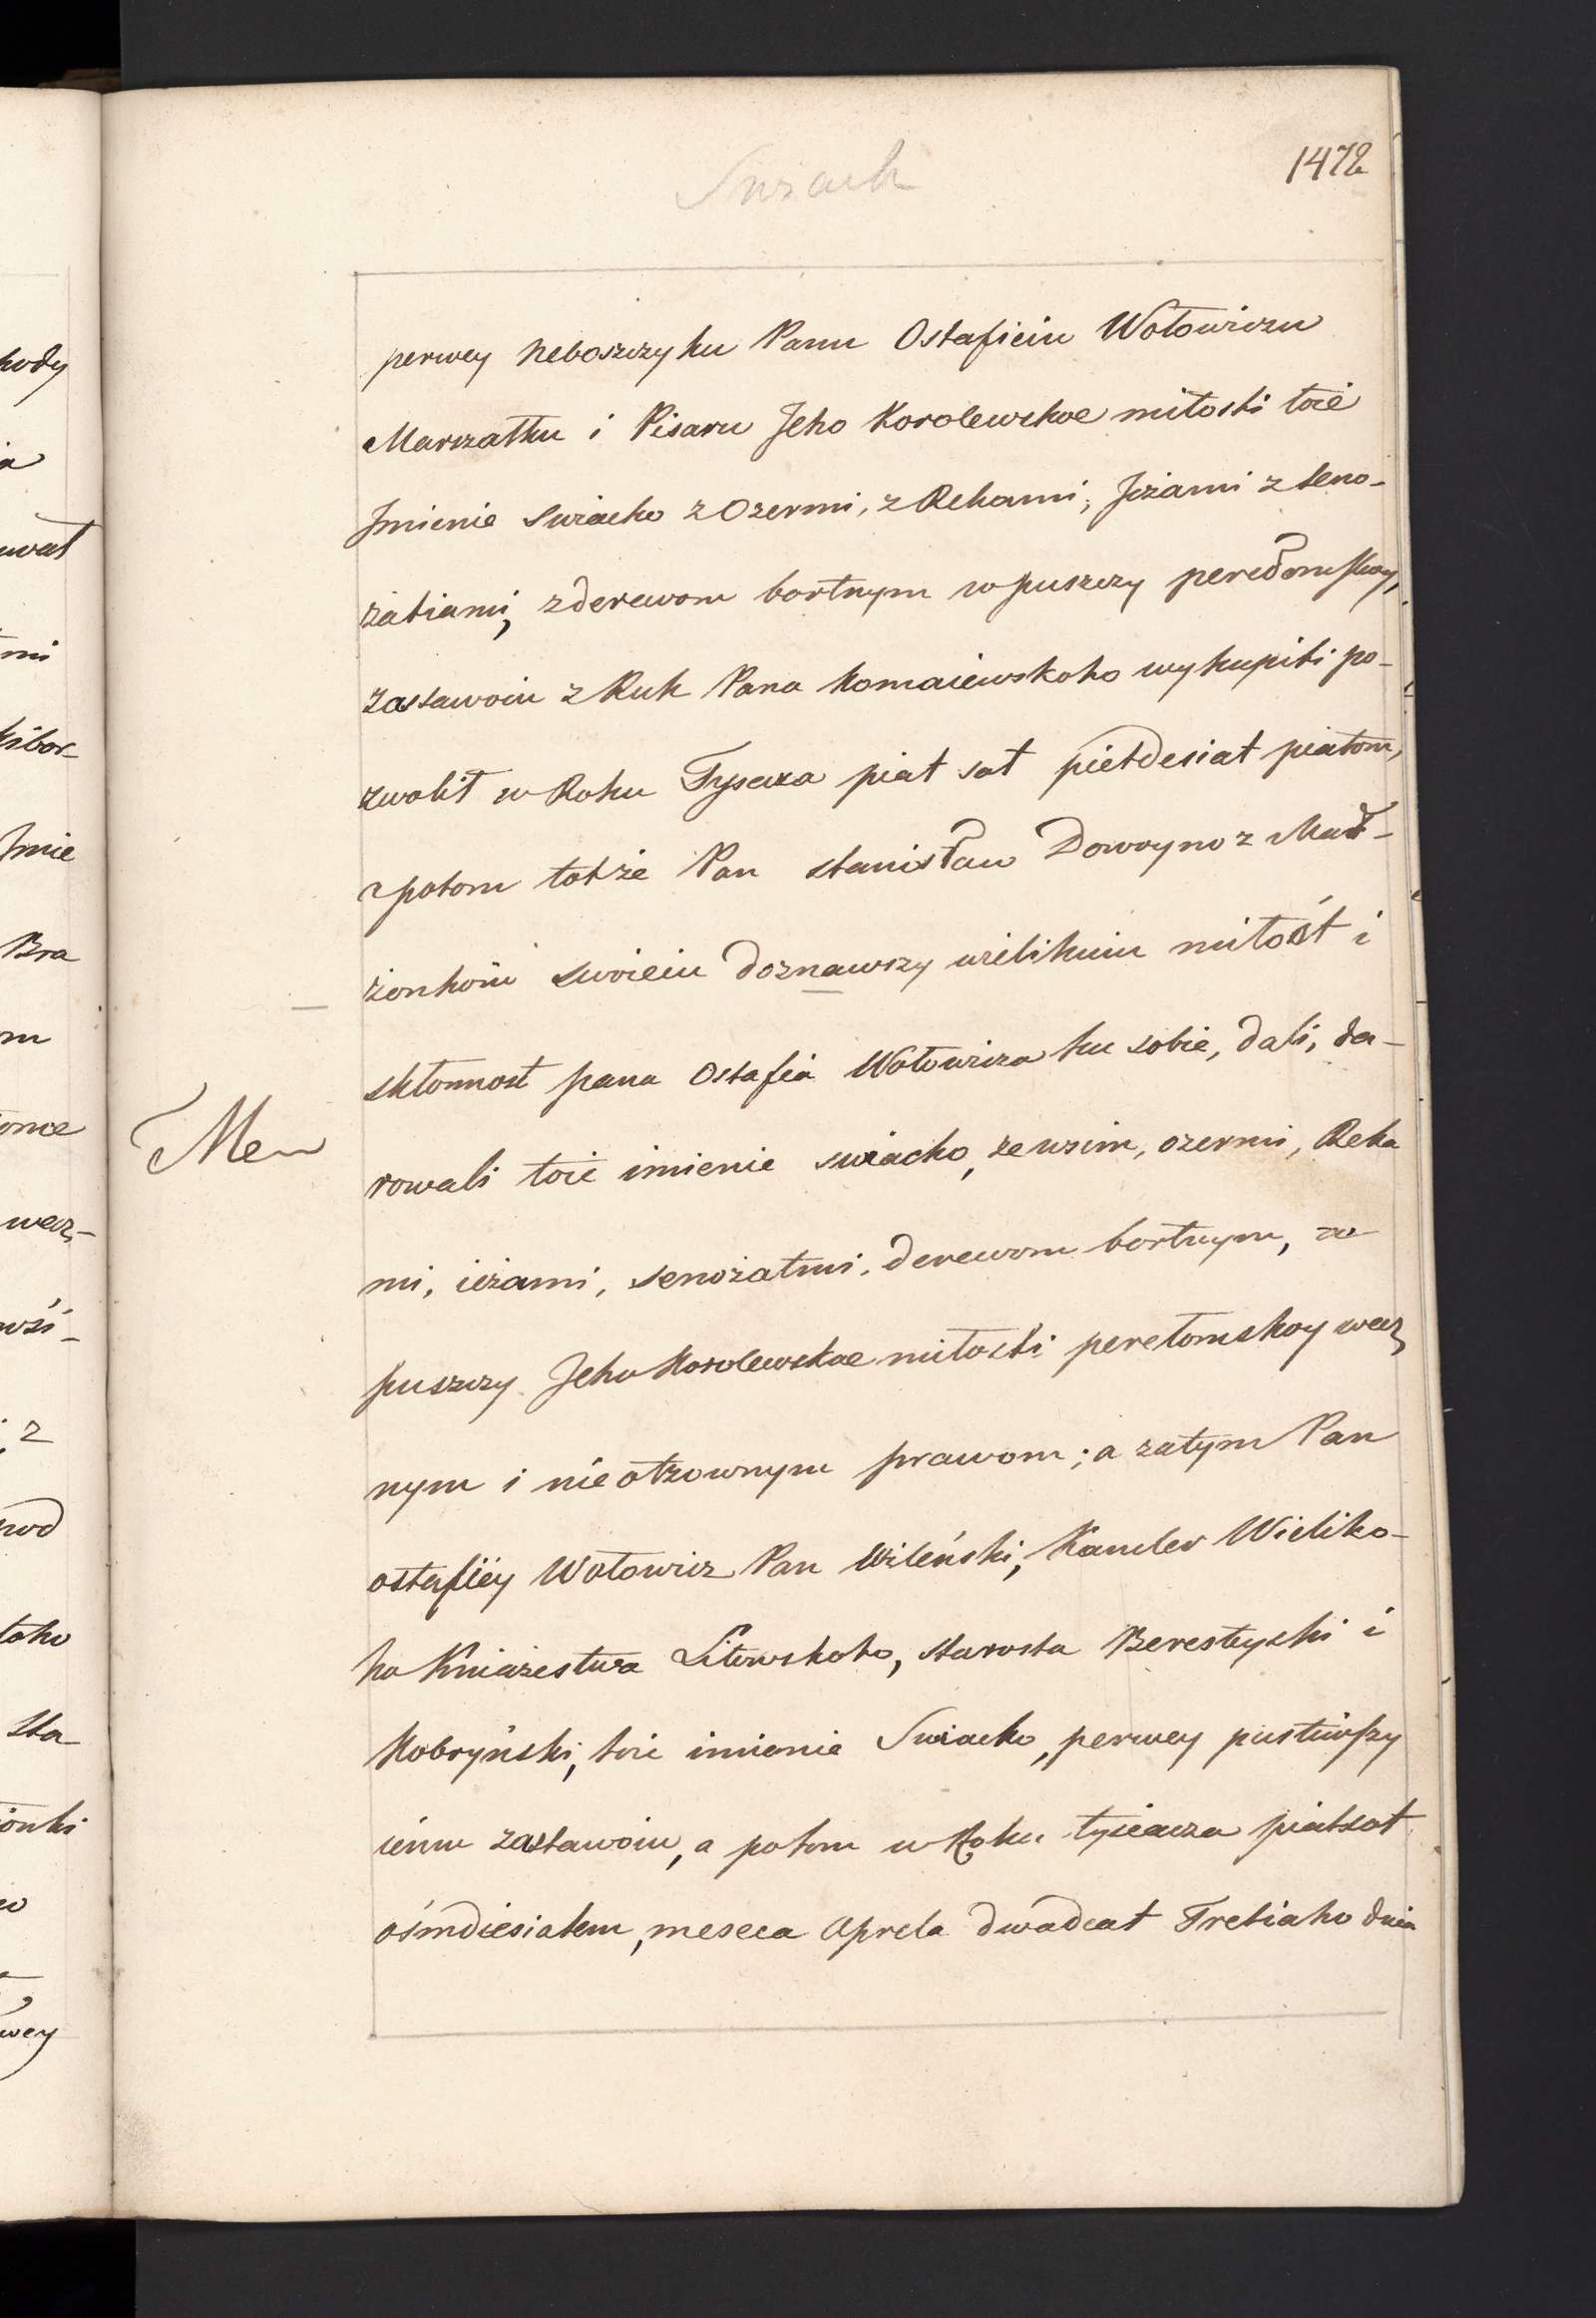 1472
Swiack
perwey neboszczyku Panu Ostafieiu Wołowiczu
Marszałku i Pisaru Jeho Korolewskoe miłosti toie
Jmienie Swiacko z Ozermi, z Rekami, Jezami z seno-
żatiami, z derewom bortnym w puszczy perełomskoy,
zastawoiu z Ruk Pana Komaiewskoho wykupiti po-
zwolił w Roku Tysecza piat sot pietdesiat piatom,
a potom tot że Pan Stanisław Dowoyno z Mał-
żonkoiu swoieiu doznawszy wielikuiu miłost i
skłonnost pana Ostafia Wołowicza ku sobie, dali, da-
rowali toie imienie swiacko, ze wsim, ozermi, Reka
mi, iezami, senożatmi, derewom bortnym, w
puszczy Jeho Korolewskoe miłosti perełomskoy wecz
nym i nieotzownym prawom; a zatym Pan
ostafiéy Wołowicz Pan Wileński, Kancler Wieliko-
ho Kniażestwa Litowskoho, starosta Berestyyski i
Kobryński, toie imienie Swiacko, perwey pustiwszy
iému zastawoiu, a potom w Roku tysiecza piatsot
ośmdiesiatem, meseca Aprela dwadcat Tretiaho dnia
Men
kody
uwał
mi
Jmie
Bra
m
wecz-
z
toho
sta-
żonki
wey